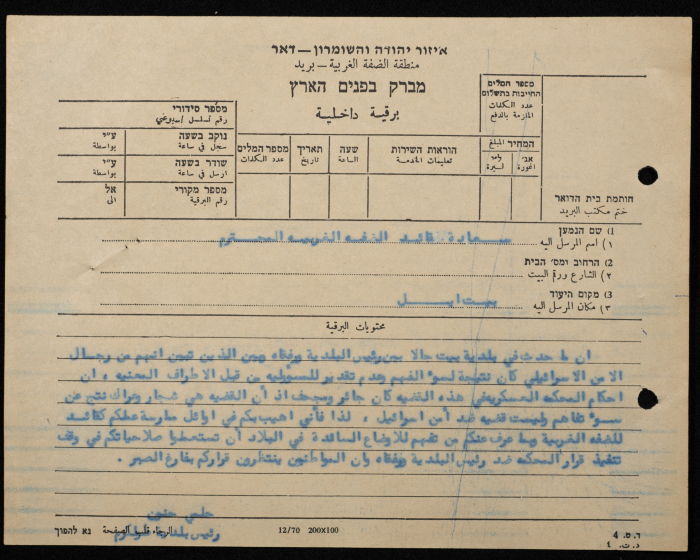 איזור יהודה והשומרון – דאר
منطقة الضفة الغربية – بريد
מברק בפנים הארץ
برقية داخلية
מספר המלים החייבות בתשלום
عدد الكلمات الملزمة بالدفع
המחיר المبلغ
אג׳ اغورة
ל״י ليرة
חותמת בית הדואר
ختم مكتب البريد
מספר סידורי
رقم تسلسل اسبوعي
נוקב בשעה ע״י
سجل في ساعة بواسطة
שודר בשעה ע״י
ارسل في ساعة بواسطة
מספר מקורי אל
رقم البرقية الى
מספר המלים
عدد الكلمات
תאריך
تاريخ
שעה
الساعة
הוראות השירות
تعليمات الخدمة
1) שם הנמען
١) اسم المرسل اليه سعادة قائد الضفه الغربيه المحترم
2) הרחוב ומס׳ הבית
٢) الشارع ورقم البيت
3) מקום היעוד
٣) مكان المرسل اليه بيت ايل
محتويات البرقية
ان ما حدث في بلدية بيت جالا بين رئيس البلدية ورفقاه وبين الذين تبين انهم من رجال
الامن الاسرائيلي كان نتيجة لسوء الفهم وعدم تقدير للمسؤليه من قبل الاطراف المعنيه ، ان
احكام المحكمه العسكريه في هذه القضيه كان جائر ومجحف اذ أن القضيه هي شجار وعراك نتج عن
سوء تفاهم وليست قضيه ضد أمن اسرائيل ، لذا فأني اهيب بكم في اوائل ممارسة عملكم كقائد
للضفه الغربية وبما عرف عنكم من تفهم للاوضاع السائدة في البلاد أن تستعملوا صلاحياتكم في وقف
تنفيذ قرار المحكمه ضد رئيس البلدية ورفقاه وان المواطنين ينتظرون قراركم بفارغ الصبر .
حلمي حنون
رئيس بلدية طولكرم
ד. ט. 4
د. ت. ٤
12/70 200X100
الرجاء قلب الصفحة
נא להפוך